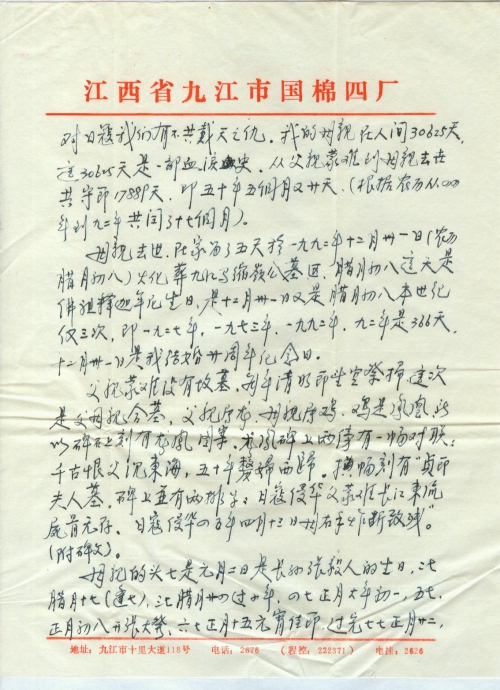 江西省九江市国棉四厂
对日寇我们有不共戴天之仇。我的母亲在人间30625天,
这30625天是一部血泪史。从父亲蒙难到母亲去世
共守节17889天,即五十年五个月又廿天。(根据农历从
年到九二年共闰了十七个月)。
母亲去世,在家留了五天于一九九二年十二月卅一日(农历
腊月初八)火化葬九江马祖岭公墓区,腊月初八这天是
佛祖释迦牟尼生日,是十二月卅一日又是腊月初八本世纪
仅三次,即一九二七年,一九七三年,一九九二年,九二年是366天,
十二月卅一日是我结婚廿周年纪念日。
父亲蒙难没有坟墓,每年清明节坐空祭扫,这次
是父母亲合墓,父亲属龙,母亲属鸡,鸡是凤凰,所
以碑石上刻有龙凤图案,龙凤碑上两傍有一幅对联:
千古恨父沉东海,五十年嫠妇西归。横幅刻有“贞节
夫人墓,碑上并有两排字:日寇侵华父蒙难长江东流
尸首无存。日寇侵华四五年四月十三日母右手炸断致残”。
(附碑文)。
母亲的头七是元月二日是长孙张毅人的生日,二七
腊月十七(逢七),三七腊月廿四过小年,四七正月大年初一,五七
正月初八开张大发,六七正月十五元宵佳节,过完七七正月廿二,
地址:九江市十里大道118号 电话:2676 (程控:222371) 电挂:2626